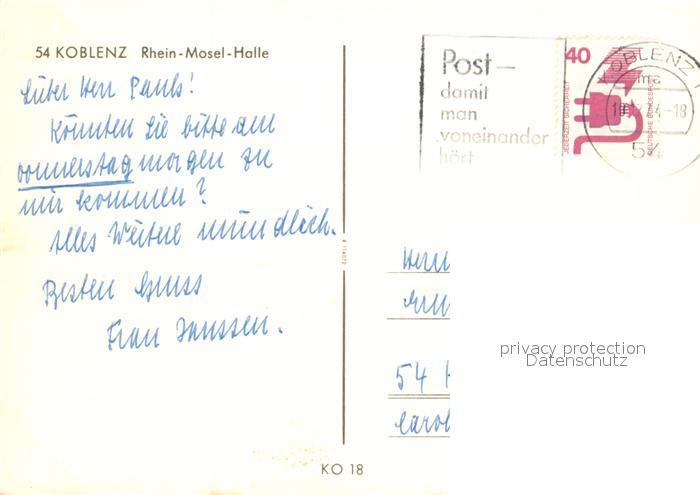 54 KOBLENZ Rhein-Mosel-Halle
Lieber Herr Pauls!
Könnten Sie bitte am
Donnerstag morgen zu
mir kommen?
Alles Weitere mündlich.
Besten Gruss
Frau Janssen.
Post-
damit
man
voneinander
hört
40
JEDERZEIT SICHERHEIT
DEUTSCHE BUNDESPOST
KOBLENZ 1
54
Herrn
54
privacy protection
Datenschutz
KO 18